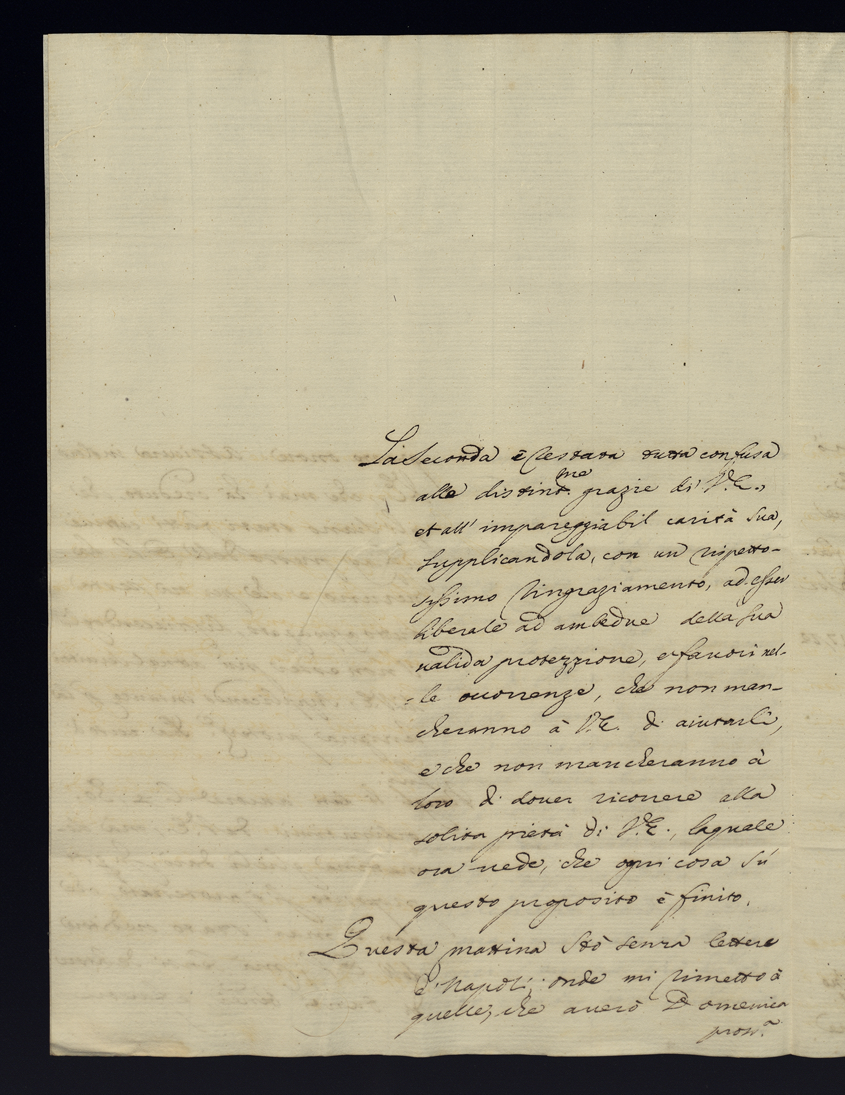 La Seconda è restata tutta confusa
alle distint.me grazie di V.E.,
et all' impareggiabil carità sua,
supplicandola, con un rispetto-
sissimo ringraziamento, ad esser
liberale ad ambedue della sua
valida protezzione, e favori nel-
-le occorrenze, che non man-
cheranno à V.E. di aiutarli,
e che non mancheranno à
loro di dover ricorrere alla
solita pietà di V.E., laquale
ora vede, che ogni cosa sù
questo proposito è finito.
Questa mattina stò senza lettere
di Napoli; onde mi rimetto à
quelle, che averò Domenica
pross.a